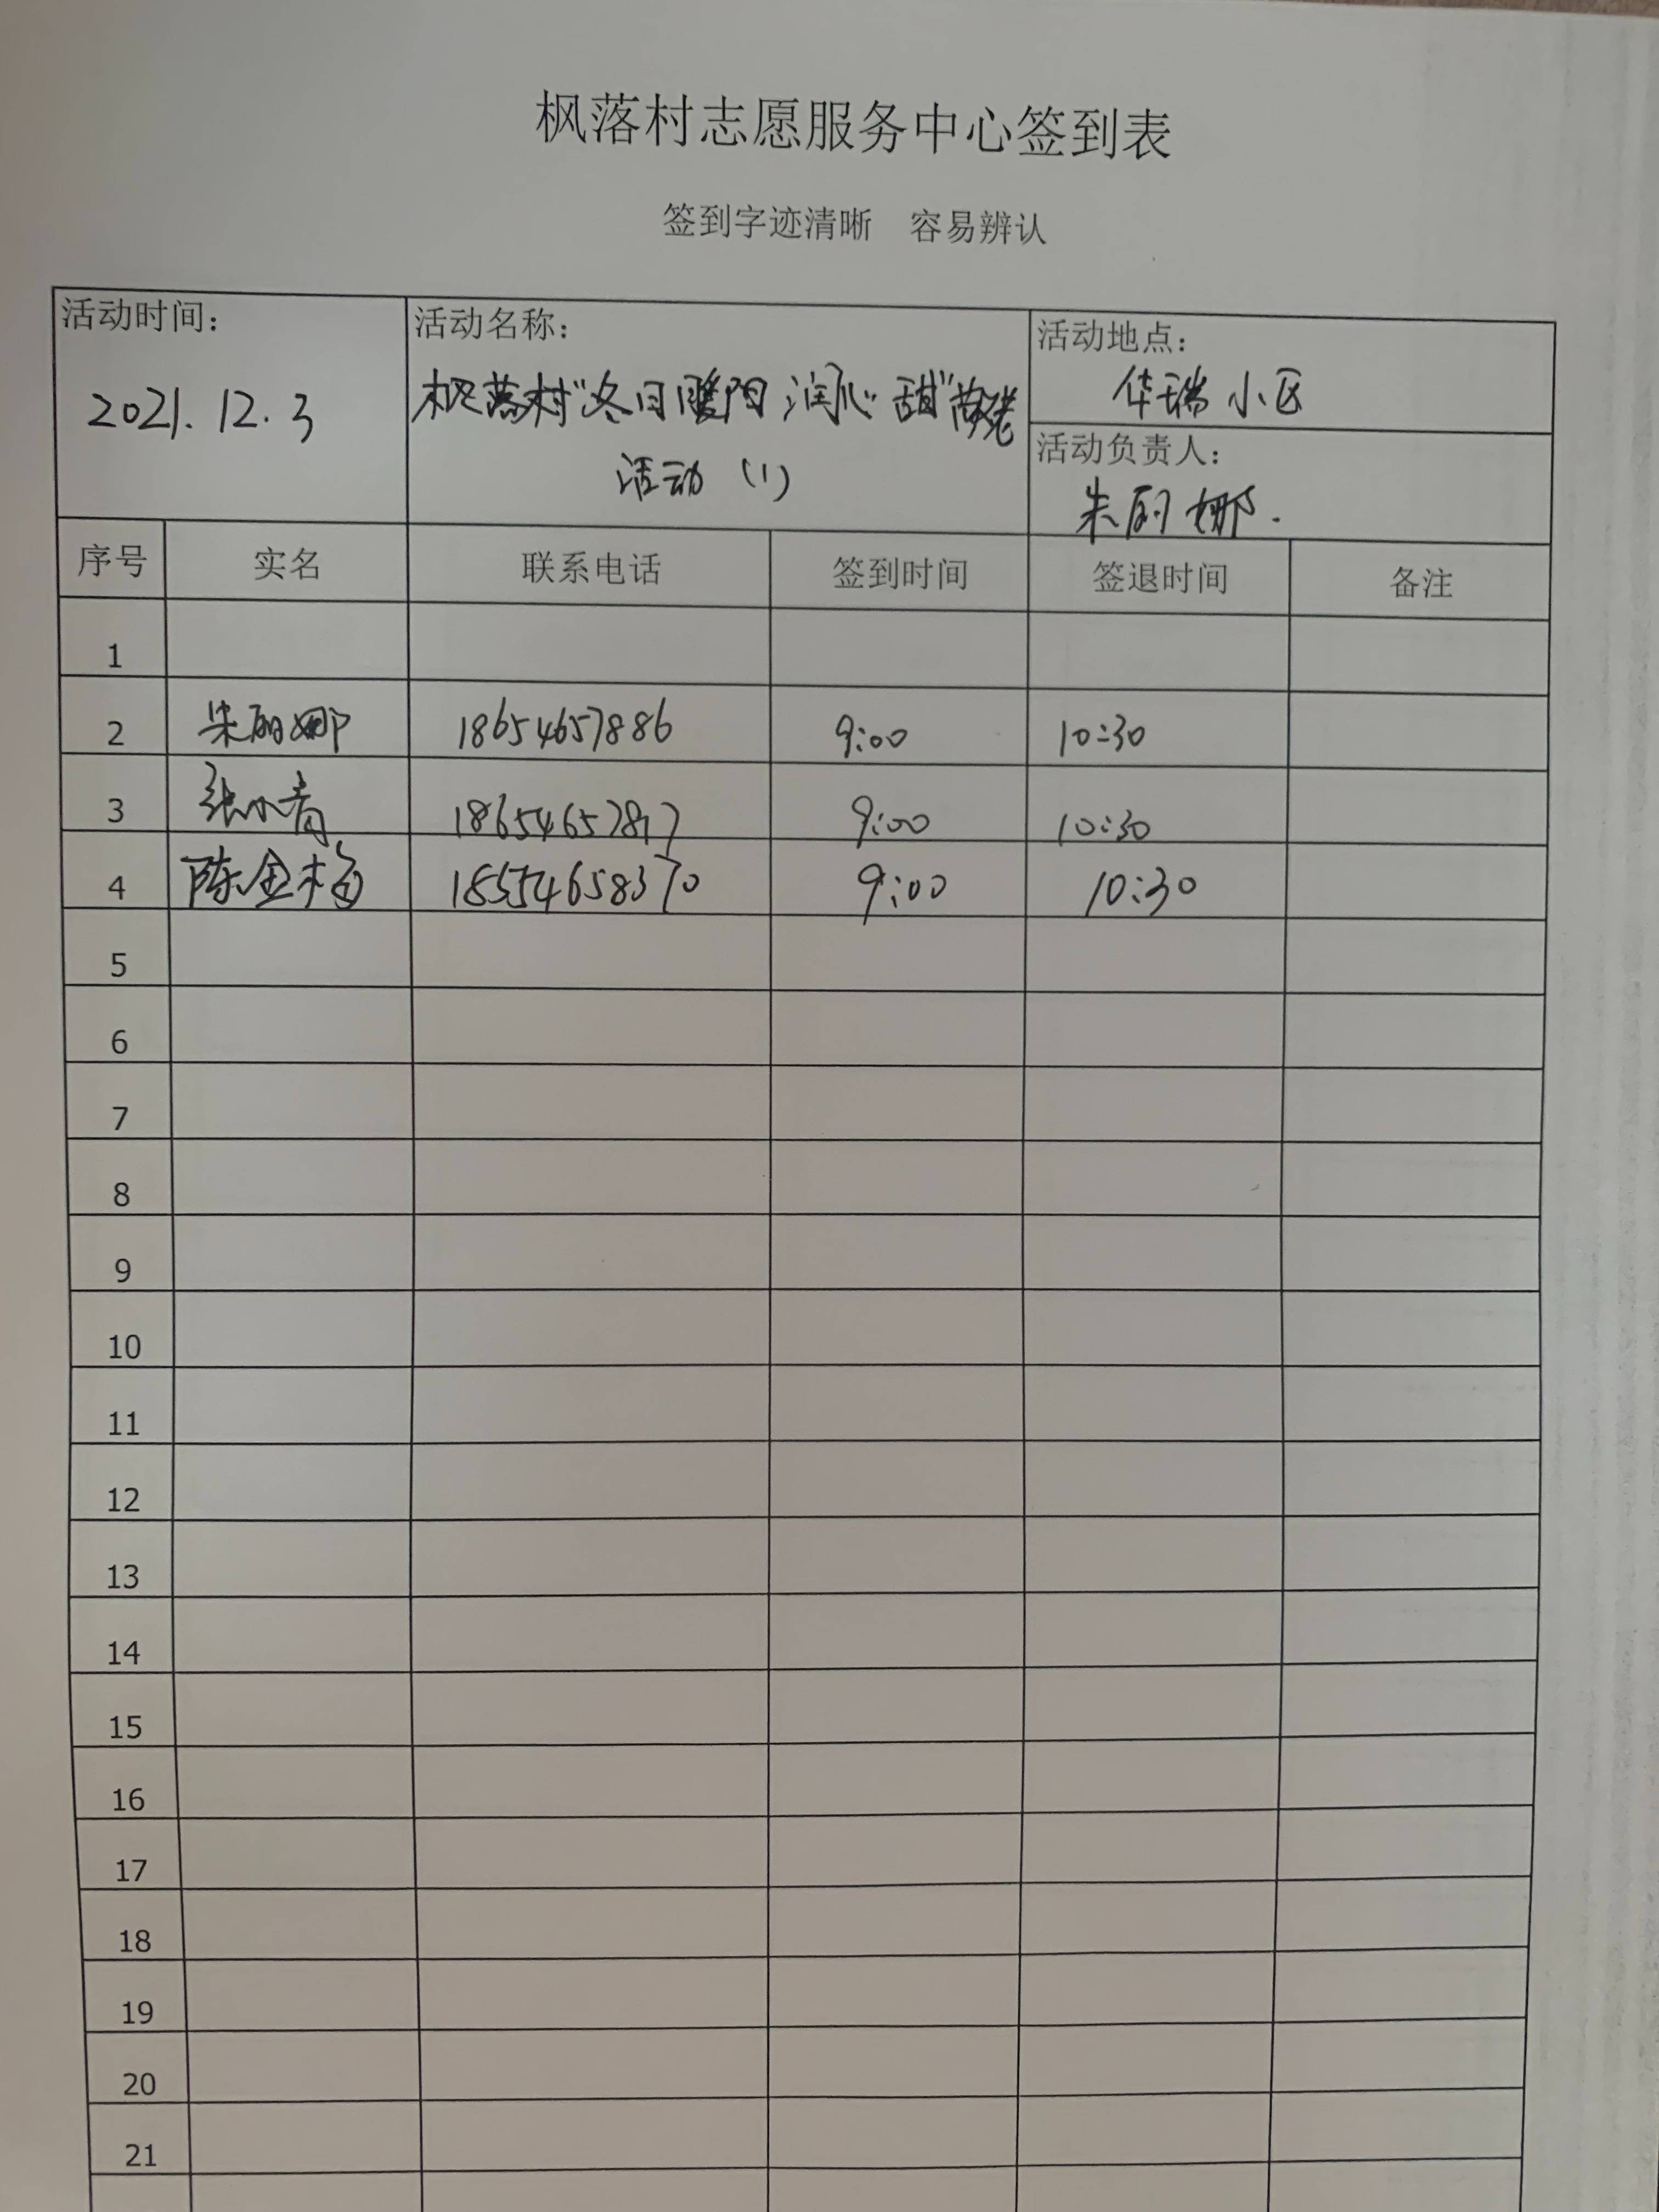 枫落村志愿服务中心签到表
签到字迹清晰 容易辨认
活动时间：
2021.12.3
活动名称：
枫落村“冬日暖阳 润心甜”敬老
活动（1）
活动地点：
华瑞小区
活动负责人：
朱丽娜.
序号 实名 联系电话 签到时间 签退时间 备注
1
2 朱丽娜 18654657886 9:00 10:30
3 张小青 18654657817 9:00 10:30
4 陈金梅 18554658370 9:00 10:30
5
6
7
8
9
10
11
12
13
14
15
16
17
18
19
20
21